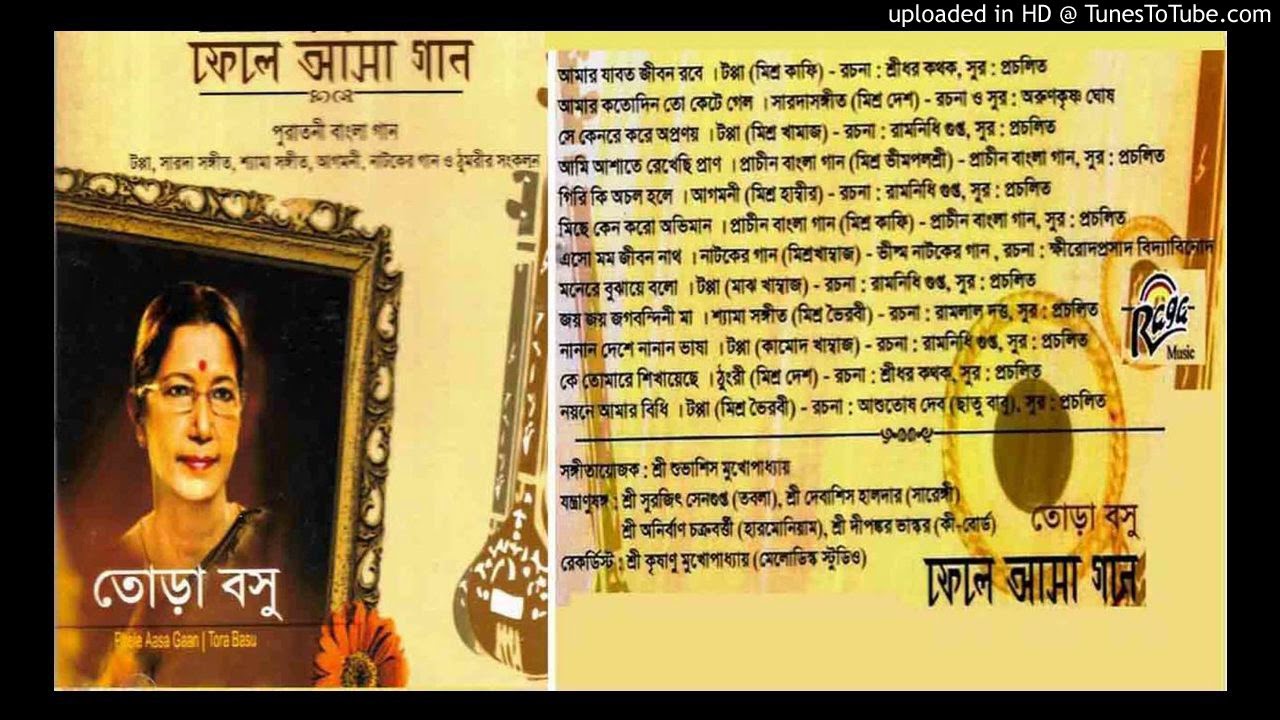 uploaded in HD @ TunesToTube.com
ফেলে আসা গান
পুরাতনী বাংলা গান
টপ্পা, সারদা সঙ্গীত, শ্যামা সঙ্গীত, আগমনী, নাটকের গান ও ঠুমরীর সংকলন
তোড়া বসু
Phele Aasa Gaan | Tora Basu
আমার যাবত জীবন রবে । টপ্পা (মিশ্র কাফি) - রচনা : শ্রীধর কথক, সুর : প্রচলিত
আমার কতোদিন তো কেটে গেল । সারদাসঙ্গীত (মিশ্র দেশ) - রচনা ও সুর : অরুণকৃষ্ণ ঘোষ
সে কেনরে করে অপ্রণয় । টপ্পা (মিশ্র খামাজ) - রচনা : রামনিধি গুপ্ত, সুর : প্রচলিত
আমি আশাতে রেখেছি প্রাণ । প্রাচীন বাংলা গান (মিশ্র ভীমপলশ্রী) - প্রাচীন বাংলা গান, সুর : প্রচলিত
গিরি কি অচল হলে । আগমনী (মিশ্র হাম্বীর) - রচনা : রামনিধি গুপ্ত, সুর : প্রচলিত
মিছে কেন করো অভিমান । প্রাচীন বাংলা গান (মিশ্র কাফি) - প্রাচীন বাংলা গান, সুর : প্রচলিত
এসো মম জীবন নাথ । নাটকের গান (মিশ্রখাম্বাজ) - ভীষ্ম নাটকের গান , রচনা : ক্ষীরোদপ্রসাদ বিদ্যাবিনোদ
মনেরে বুঝায়ে বলো । টপ্পা (মাঝ খাম্বাজ) - রচনা : রামনিধি গুপ্ত, সুর : প্রচলিত
জয় জয় জগবন্দিনী মা । শ্যামা সঙ্গীত (মিশ্র ভৈরবী) - রচনা : রামলাল দত্ত, সুর : প্রচলিত
নানান দেশে নানান ভাষা । টপ্পা (কামোদ খাম্বাজ) - রচনা : রামনিধি গুপ্ত, সুর : প্রচলিত
কে তোমারে শিখায়েছে । ঠুংরী (মিশ্র দেশ) - রচনা : শ্রীধর কথক, সুর : প্রচলিত
নয়নে আমার বিধি । টপ্পা (মিশ্র ভৈরবী) - রচনা : আশুতোষ দেব (ছাতু বাবু), সুর : প্রচলিত
Raga
Music
সঙ্গীতায়োজক : শ্রী শুভাশিস মুখোপাধ্যায়
যন্ত্রাণুষঙ্গ : শ্রী সুরজিৎ সেনগুপ্ত (তবলা), শ্রী দেবাশিস হালদার (সারেঙ্গী)
শ্রী অনির্বাণ চক্রবর্ত্তী (হারমোনিয়াম), শ্রী দীপঙ্কর ভাস্কর (কী-বোর্ড)
রেকর্ডিস্ট : শ্রী কৃষাণু মুখোপাধ্যায় (মেলোডিজ স্টুডিও)
তোড়া বসু
ফেলে আসা গান